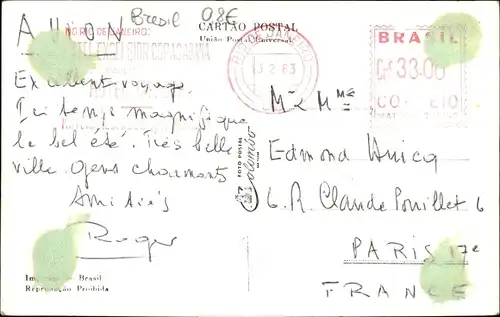 Bresil 0,8€
AVION
CARTÃO POSTAL
União Postal Universal
NO RIO DE JANEIRO:
HOTEL EXCELSIOR COPACABANA
RIO DE JANEIRO
13 2 63
BRASIL
Cr$ 33.00
CORREIO
Excellent voyage
Ici temps magnifique
le bel été. Très belle
ville Gens charmants
Amitiés
Roger
Mr & Mme
Edmond Hunicq
6. R. Claude Pouillet 6
PARIS 17e
FRANCE
FOTO POSTAL
Colombo
Brasil
Reprodução Proibida